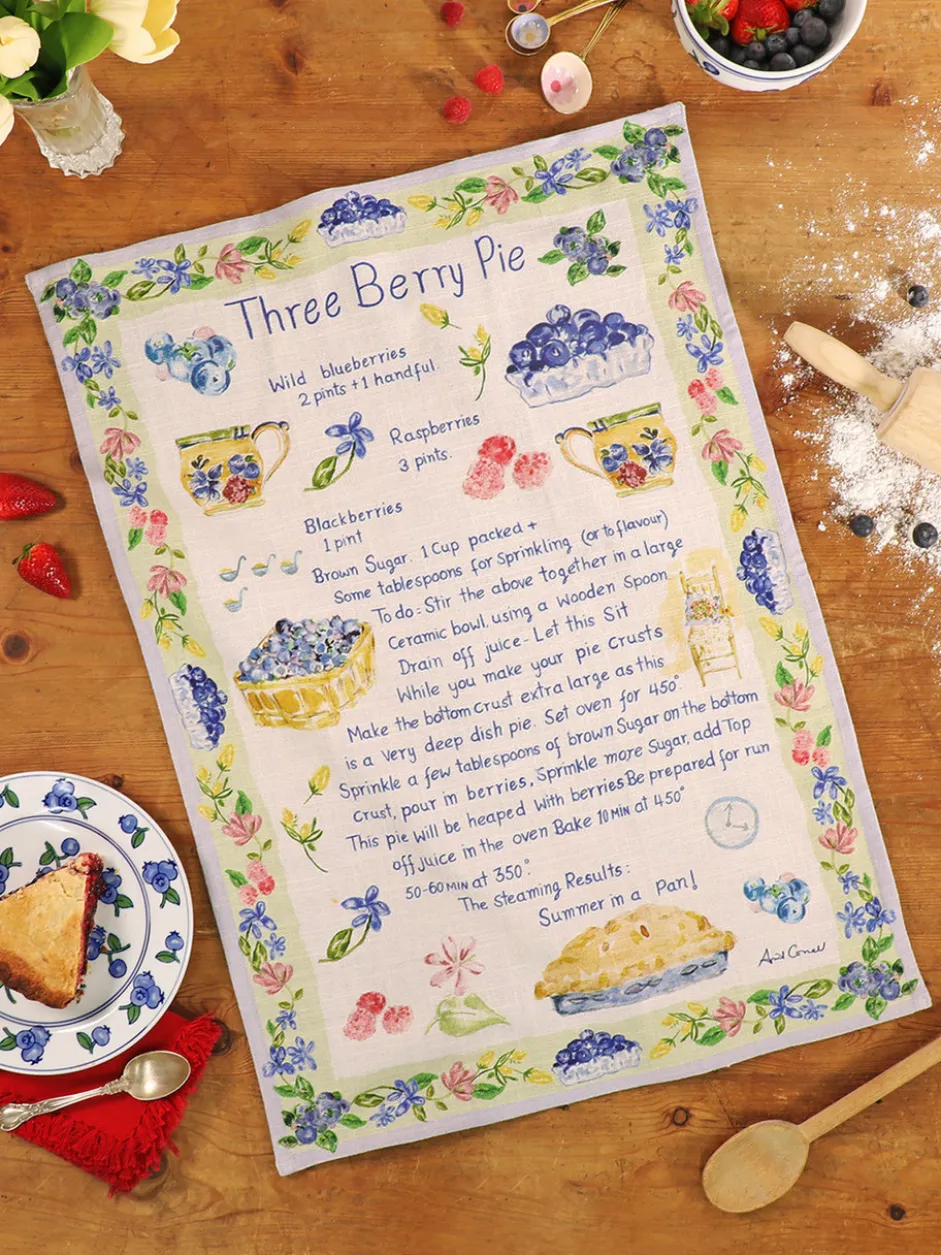 Three Berry Pie
Wild blueberries
2 pints + 1 handful.
Raspberries
3 pints.
Blackberries
1 pint
Brown Sugar. 1 Cup packed +
Some tablespoons for Sprinkling (or to flavour)
To do: Stir the above together in a large
Ceramic bowl, using a Wooden Spoon
Drain off juice - Let this Sit
While you make your pie Crusts
Make the bottom Crust extra large as this
is a very deep dish pie. Set oven for 450°.
Sprinkle a few tablespoons of brown Sugar on the bottom
Crust, pour in berries, Sprinkle more Sugar, add Top
This pie will be heaped With berries Be prepared for run
off juice in the oven Bake 10 MIN at 450°
50-60 MIN at 350°.
The Steaming Results:
Summer in a Pan!
April Cornell